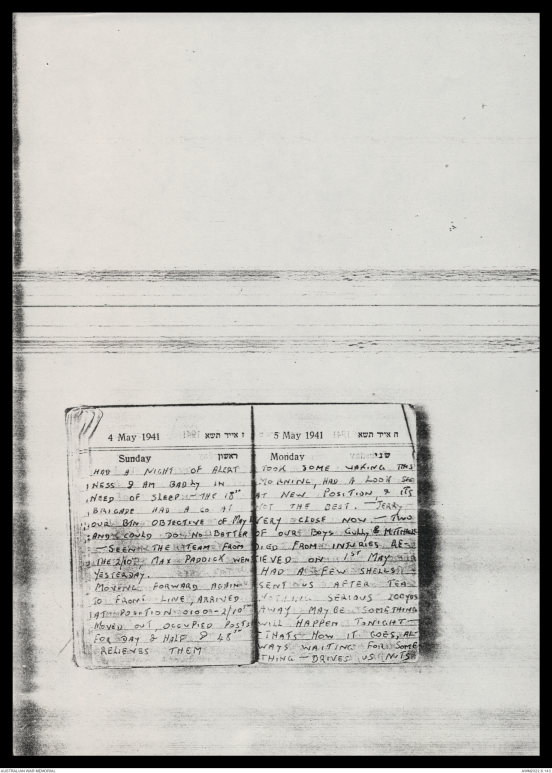 4 May 1941 ז אייר תשא
Sunday ראשון
HAD A NIGHT OF ALERT
NESS & AM BADLY IN
NEED OF SLEEP - THE 18TH
BRIGADE HAD A GO AT
OUR BTN OBJECTIVE OF MAY 1
AND COULD DO NO BETTER
- SEEN THE TEAM FROM
THE 2/10TH MAX PADDICK WEN
YESTERDAY.
MOVING FORWARD AGAIN
TO FRONT LINE, ARRIVED
AT POSITION 0100 - 2/10TH
MOVED OUT, OCCUPIED POSTS
FOR DAY & HALF & 48TH
RELIEVES THEM
5 May 1941 ח אייר תשא
Monday שני
TOOK SOME WAKING THIS
MORNING, HAD A LOOK SEE
AT NEW POSITION & ITS
NOT THE BEST. - JERRY
VERY CLOSE NOW - TWO
OF OUR BOYS GULLY &
DIED FROM INJURIES RE-
CIEVED ON 1ST MAY
HAD A FEW SHELLS
SENT US AFTER TEA
NOTHING SERIOUS 200YDS
AWAY MAYBE SOMETHING
WILL HAPPEN TONIGHT -
- THATS HOW IT GOES, AL-
WAYS WAITING FOR SOME
THING - DRIVES US NUTS
AUSTRALIAN WAR MEMORIAL